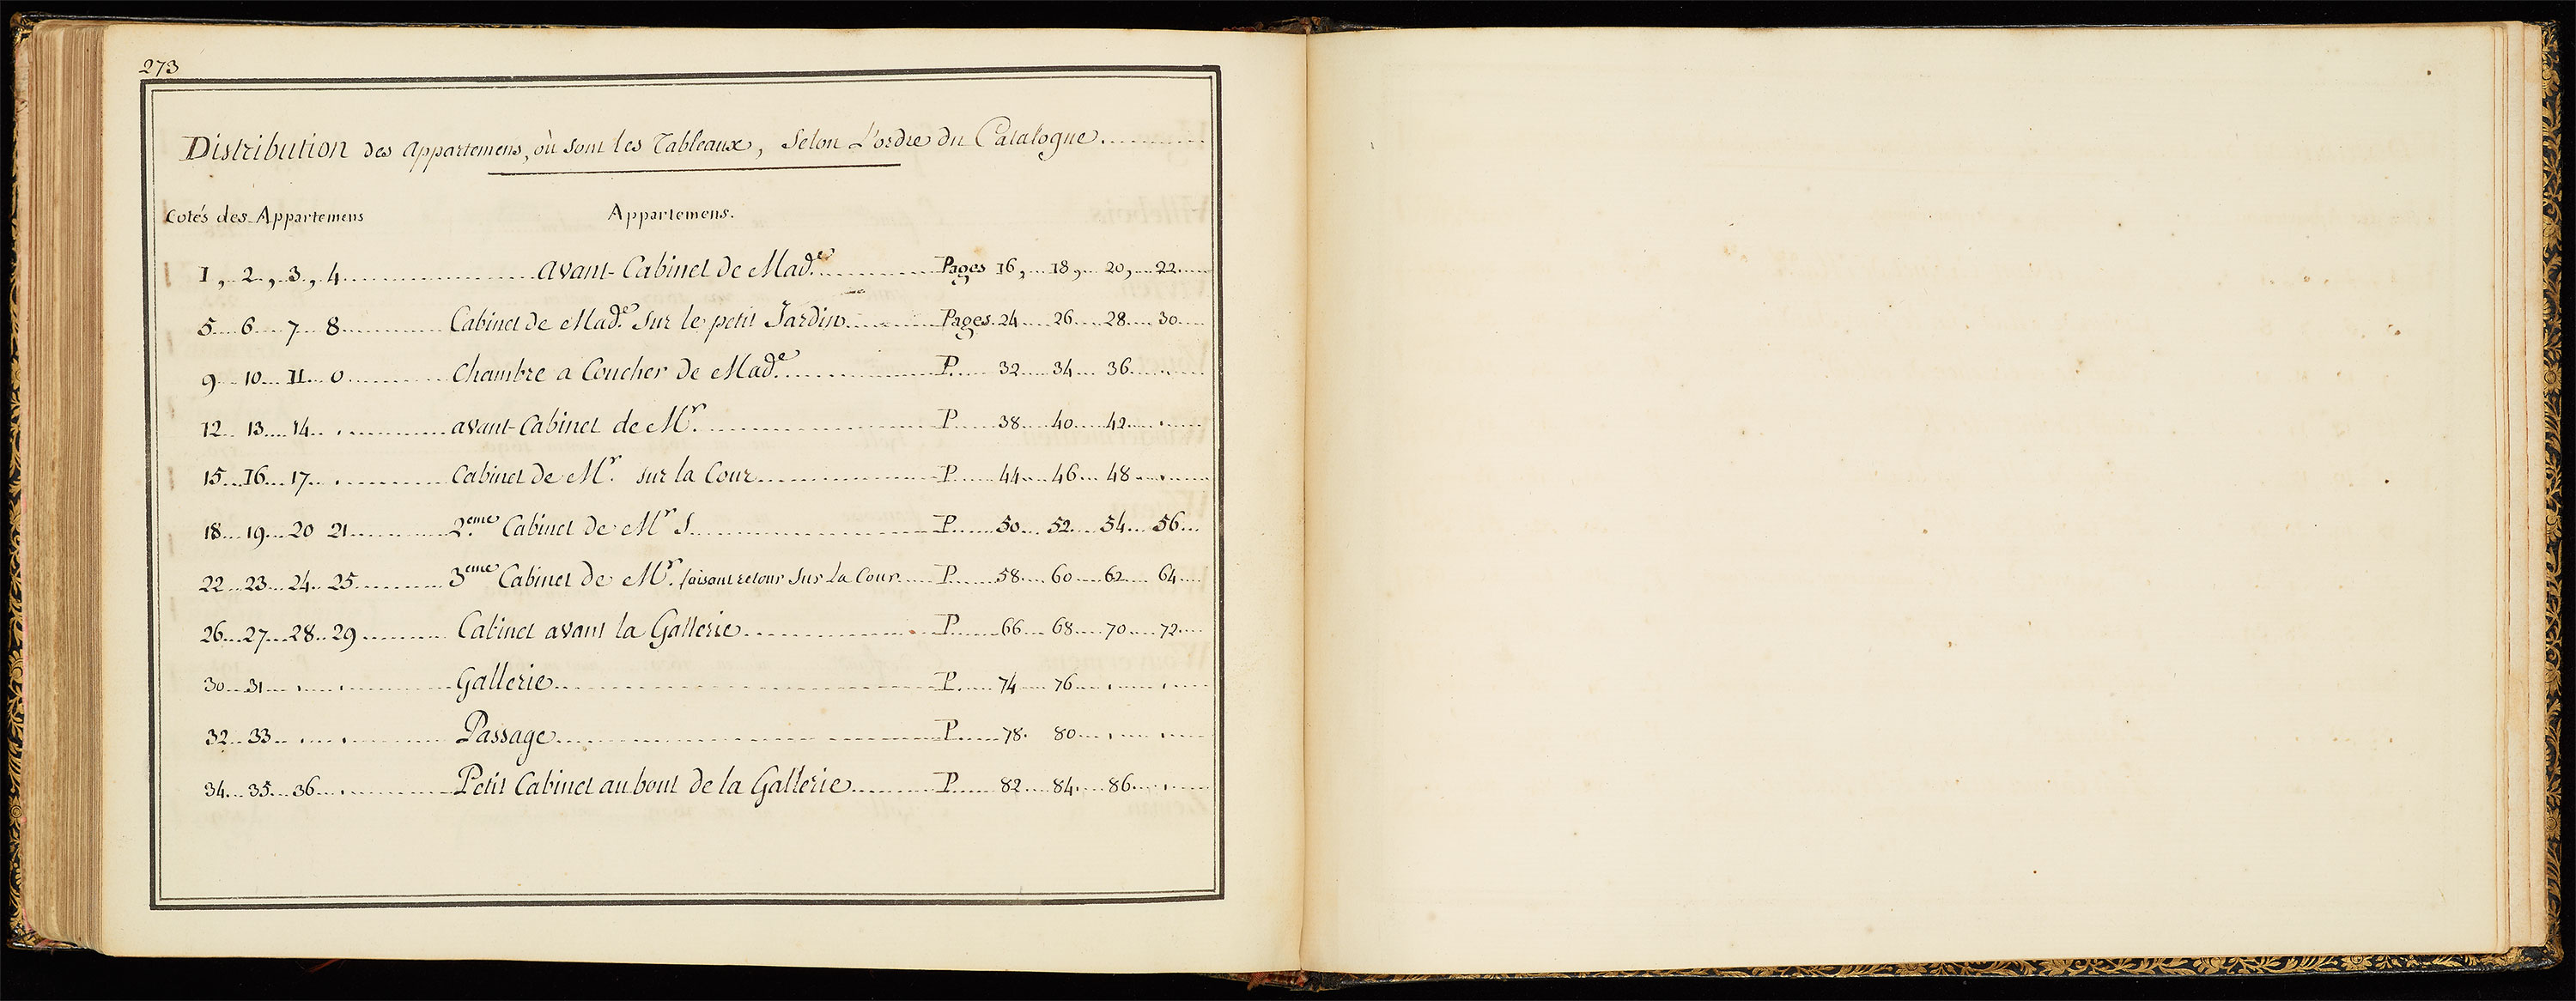 273
Distribution des Appartemens, où sont les Tableaux, Selon L'ordre du Catalogue
Cotés des Appartemens Appartemens.
1, 2, 3, 4 avant-Cabinet de Made. Pages 16, 18, 20, 22
5 6 7 8 Cabinet de Made. Sur le petit Jardin Pages 24 26 28 30
9 10 11 0 Chambre a Coucher de Made. P. 32 34 36
12 13 14 avant-Cabinet de Mr. P. 38 40 42
15 16 17 Cabinet de Mr. sur la Cour P. 44 46 48
18 19 20 21 2.eme Cabinet de Mr S P. 50 52 54 56
22 23 24 25 3eme Cabinet de Mr. faisant retour Sur La Cour P. 58 60 62 64
26 27 28 29 Cabinet avant la Gallerie P. 66 68 70 72
30 31 Gallerie P. 74 76
32 33 Passage P. 78 80
34 35 36 Petit Cabinet au bout de la Gallerie P. 82 84 86